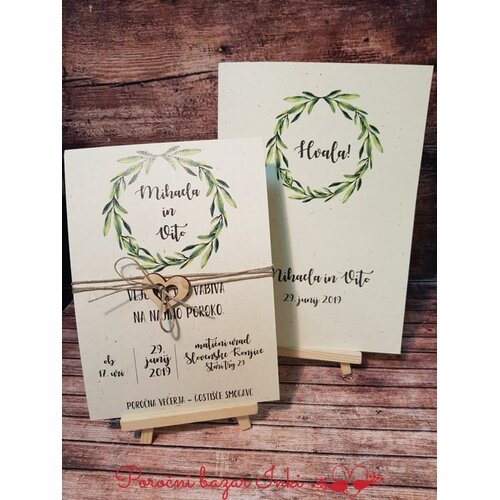 Mihaela
in
Vito
VABIVA
NA NAJINO POROKO.
ob
17. uri
29.
junij
2019
matični urad
Slovenske Konjice
Stari trg 29
POROČNA VEČERJA - GOSTIŠČE SMOGAVC
Hvala!
Mihaela in Vito
29. junij 2019
Poročni bazar Inki